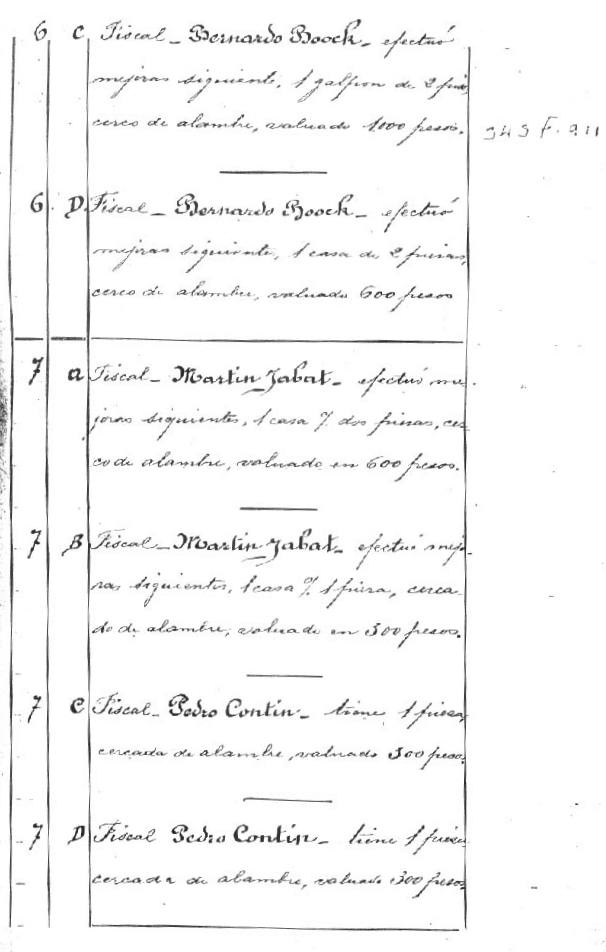 6 C Fiscal - Bernardo Boock - efectuó
mejoras siguiente, 1 galpon de 2 piezas,
cerco de alambre, valuado 1000 pesos. 343 F. 911
6 D. Fiscal - Bernardo Boock - efectuó
mejoras siguiente, 1 casa de 2 piezas,
cerco de alambre, valuado 600 pesos
7 a Fiscal - Martin Jabat - efectuó me-
joras siguientes, 1 casa % dos piezas, cer-
co de alambre, valuado en 600 pesos.
7 B Fiscal - Martin Jabat - efectuó mejo-
ras siguientes, 1 casa % 1 pieza, cerca-
do de alambre, valuado en 300 pesos.
7 C Fiscal - Pedro Contin - tiene 1 pieza,
cercada de alambre, valuado 300 pesos.
7 D Fiscal Pedro Contin - tiene 1 pieza
cercada de alambre, valuado 300 pesos